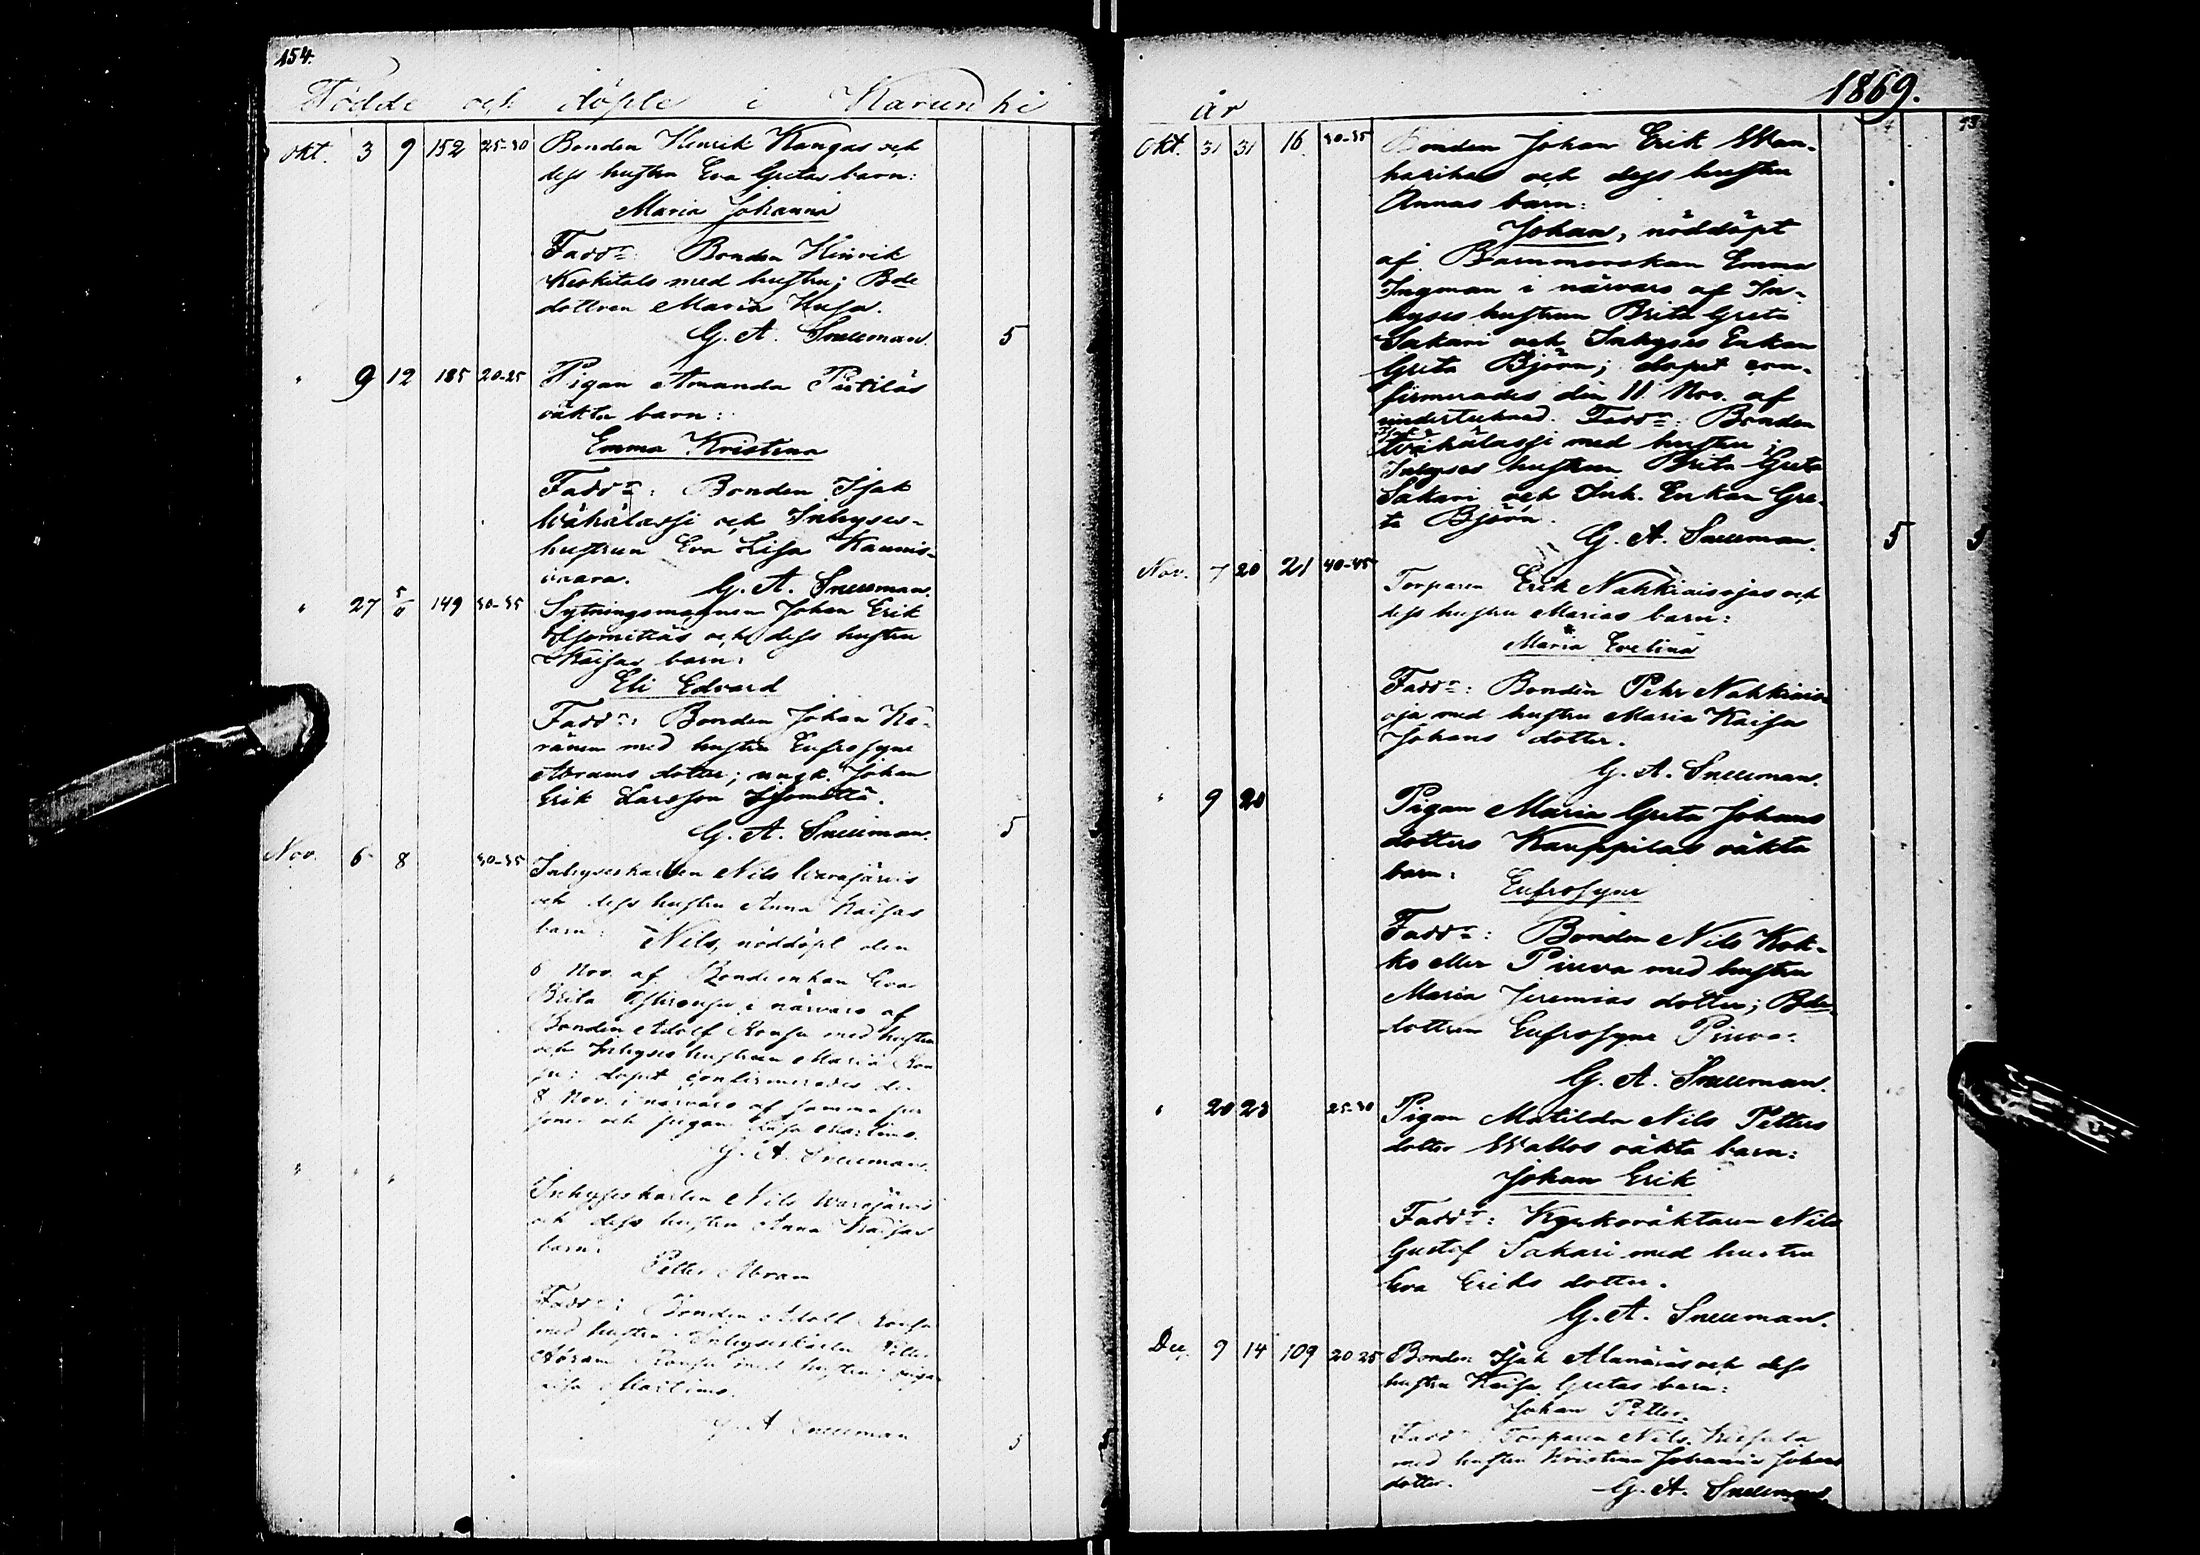 154.
Födde och döpte i Karunki
Okt. 3 9 152 25-30 Bonden Henrik Kangas och
dess hustru Eva Gretas barn:
Maria Johanna
Faddr: Bonden Hinrik
Keskitalo med hustru; Bde
dottren Maria Kusa.
G. A. Snellman. 5
" 9 12 185 20-25 Pigan Amanda Pietiläs
oäkta barn:
Emma Kristina
Faddr: Bonden Isak
Wähälassi och Inhyses-
hustrun Eva Lisa Kaunis-
vaara.
G. A. Snellman.
" 27 5/11 149 30-35 Sytningsmannen Johan Erik
och dess hustru
Kaisas barn:
Eli Edvard
Faddr: Bonden Johan Kä-
ränen med hustru Eufrosyne
Abrams dotter; ungk. Johan
Erik Larsson
G. A. Snellman. 5
Nov. 6 8 30-35 Inhyseskarlen Nils Warajärvis
och dess hustru Anna Kaisas
barn: Nils, nöddöpt den
6 Nov. af Bondeenkan Eva
Brita i närvaro af
Bonden Adolf Ronsu med hustru
och Inhyses hustrun Maria Ron
su; dopet confirmerades den
8 Nov. i närvaro af samma per
soner och pigan Kaisa Martimo.
G. A. Snellman.
" " " Inhyseskarlen Nils Warajärvis
och dess hustru Anna Kaisas
barn:
Petter Abram
Faddr: Bonden Adolf Ronsu
med hustru; Inhyseskarlen Petter
Abram Ronsu med hustru; pigan
Kaisa Martimo.
G. A. Snellman 5
år 1869.
Okt. 31 31 16. 30-35 Bonden Johan Erik Wan-
hatihas och dess hustru
Annas barn:
Johan, nöddöpt
af Barnmorskan Emma
Ingman i närvaro af In-
hyses hustrun Brita Greta
Sakari och Inhyses Enkan
Greta Björn; dopet con-
firmerades den 11 Nov. af
undertecknad. Faddr: Bonden
Isak Wähälassi med hustru;
Inhyses hustrun Brita Greta
Sakari och Inh. Enkan Gre-
ta Björn.
G. A. Snellman. 5
Nov. 7 20 21 40-45 Torparen Erik Nahkiaisojas och
dess hustru Marias barn:
Maria Evelina
Faddr: Bonden Pehr Nahkiais-
oja med hustru Maria Kaisa
Johans dotter.
G. A. Snellman.
" 9 20 Pigan Maria Greta Johans
dotters Kauppilas oäkta
barn:
Eufrosyne
Faddr: Bonden Nils Kok-
ko eller Piuva med hustru
Maria Jeremias dotter; Bde
dottren Eufrosyne Piuva.
G. A. Snellman.
" 20 23 25-30 Pigan Matilda Nils Petters
dotter Wallos oäkta barn:
Johan Erik
Faddr: Kyrkoväktaren Nils
Gustaf Sakari med hustru
Eva Eriks dotter.
G. A. Snellman.
Dec. 9 14 109 20 25 Bonden Isak Alanäräs och dess
hustru Kaisa Gretas barn:
Johan Petter.
Faddr: Torparen Nils
med hustru Kristina Johanna Johans
dotter.
G. A. Snellman.